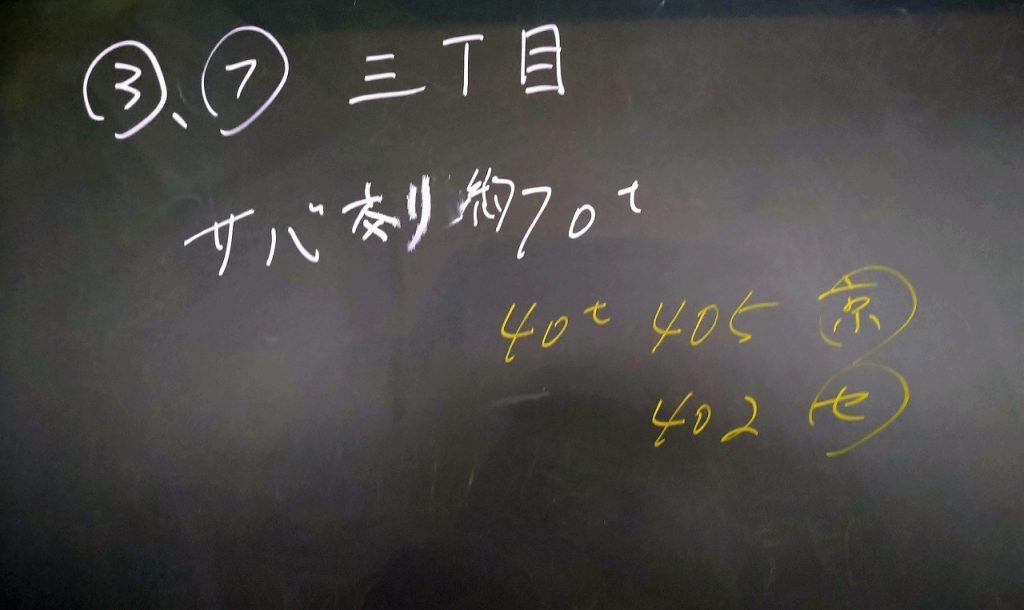 ③、⑦ 三丁目
サバ交リ約70t
40t 405 ㊗京
402 セ